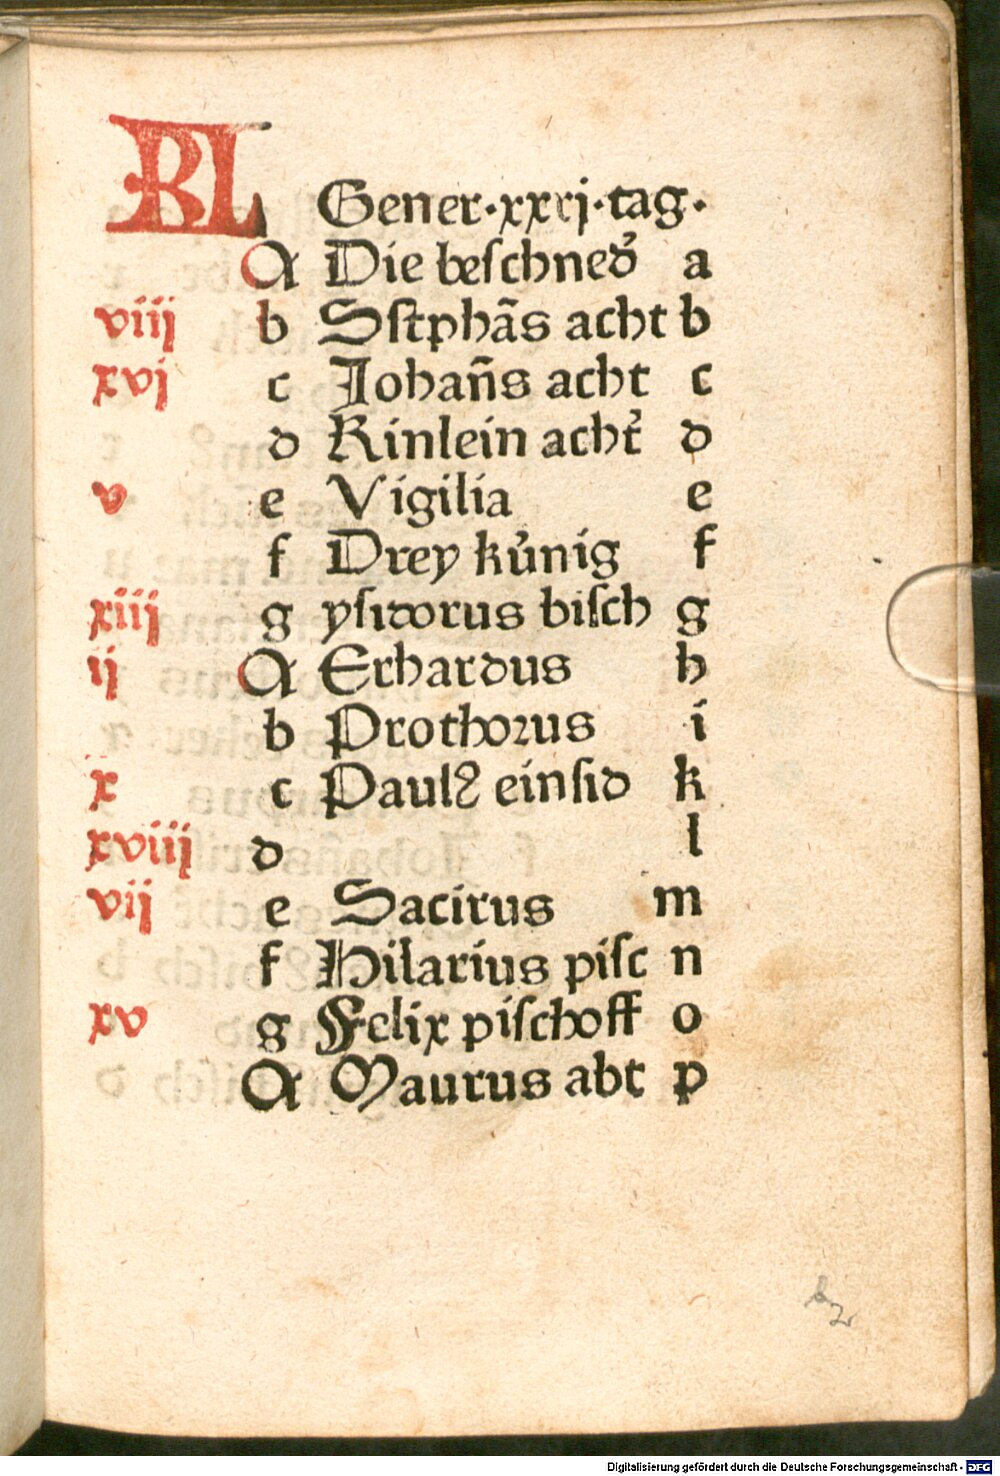 KL Gener·xxxj·tag·
A Die beſchned᷑ a
viij b Sſtphãs acht b
xvj c Johañs acht c
d Kinlein acht᷑ d
v e Vigilia e
f Drey kůnig f
xiij g yſidorus biſch g
ij A Erhardus h
b Prothoꝛus i
x c Paulꝰ einſid k
xviij d l
vij e Sacirus m
f Hilarius piſc n
xv g Felix piſchoff o
A Maurus abt p
Digitalisierung gefördert durch die Deutsche Forschungsgemeinschaft - DFG